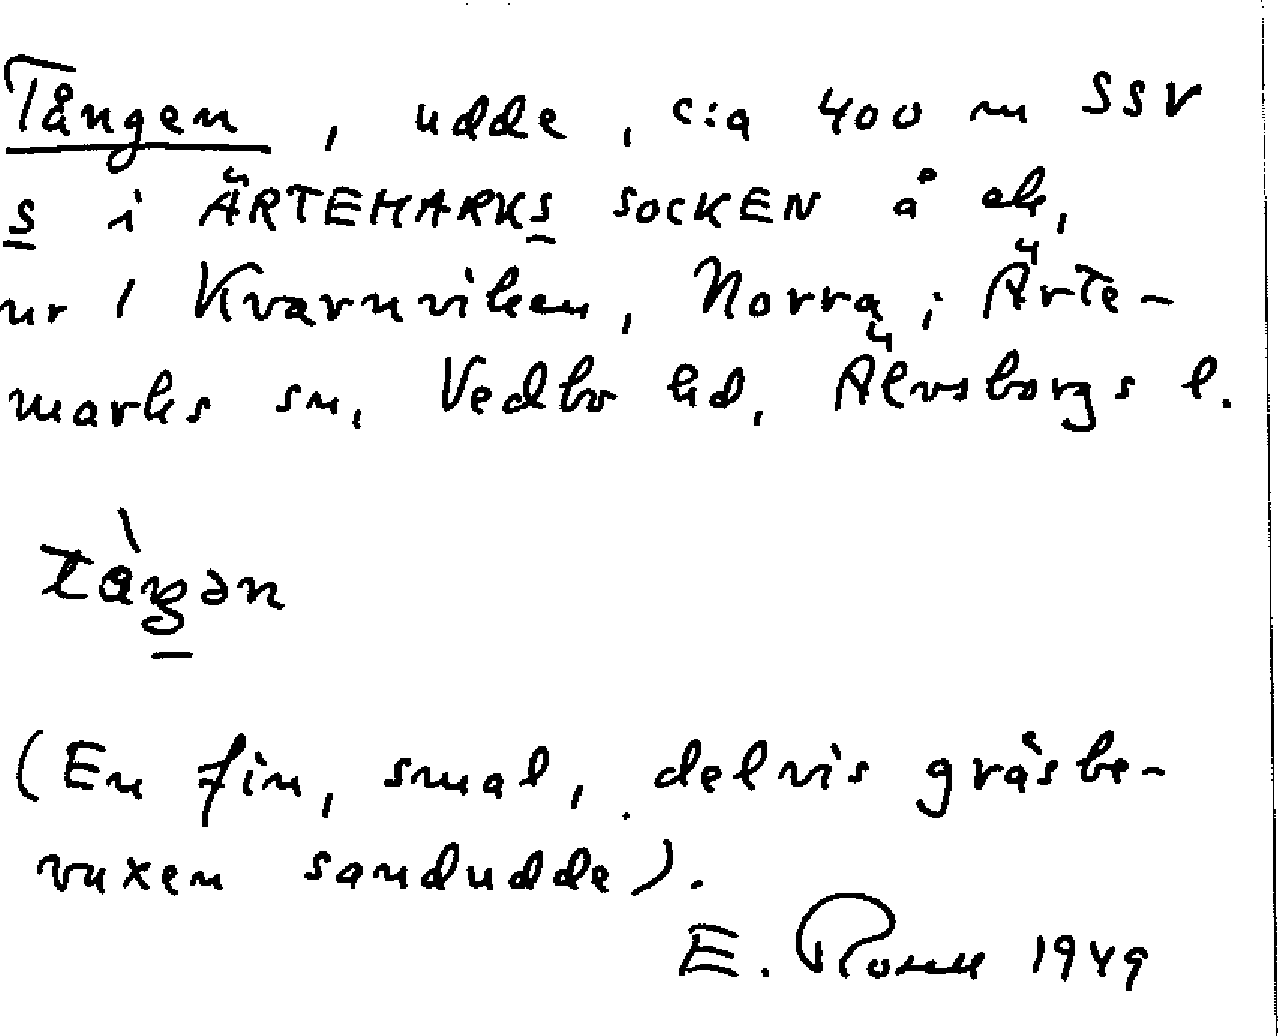 Tången, udde, c:a 400 m SSV
s i ÄRTEMARKS SOCKEN å ek,
nr 1 Kvarnviken, Norra; Ärte-
marks sn, Vedbo hd, Älvsborgs l.
(En fin, smal, delvis gräsbe-
vuxen sandudde).
E. Rosell 1949